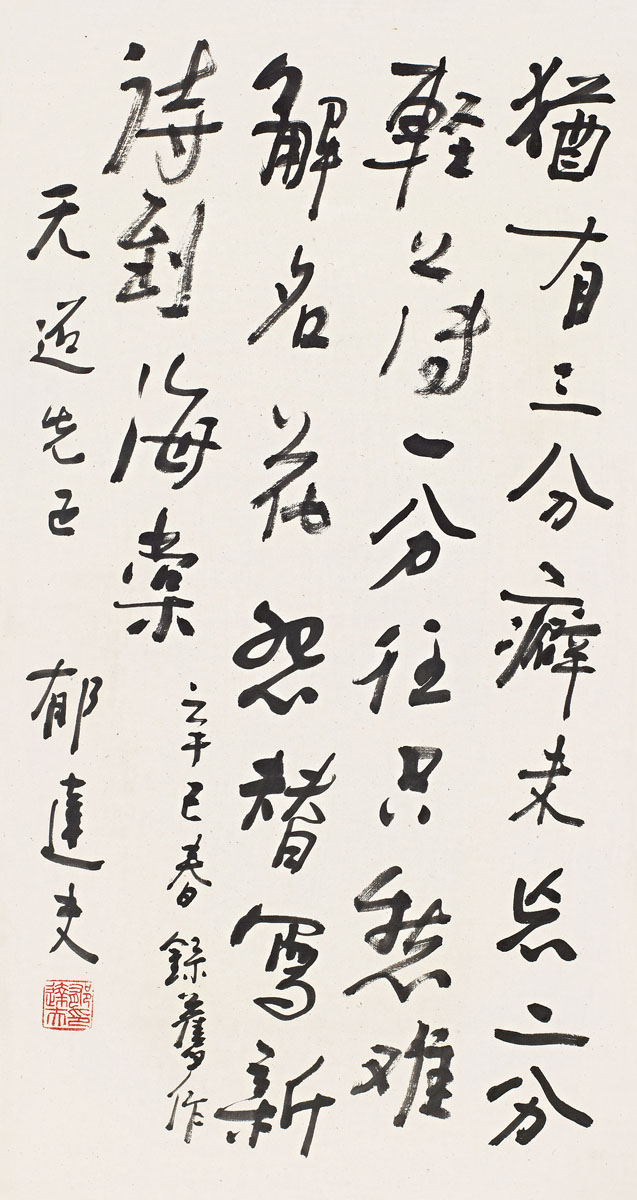 猶有三分癖未忘二分
輕薄一分狂只愁難
解名花怨替寫新
詩到海棠
辛巳春錄舊作
无先正 郁達夫
郁達夫印